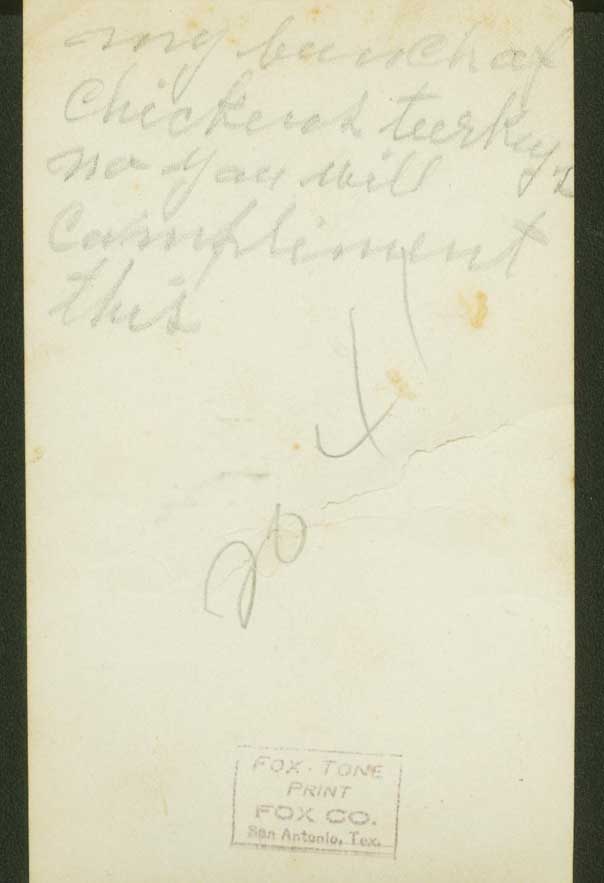 my bunch of
Chickens turkeys
no you will
Compliment
this
20
FOX-TONE
PRINT
FOX CO.
San Antonio, Tex.